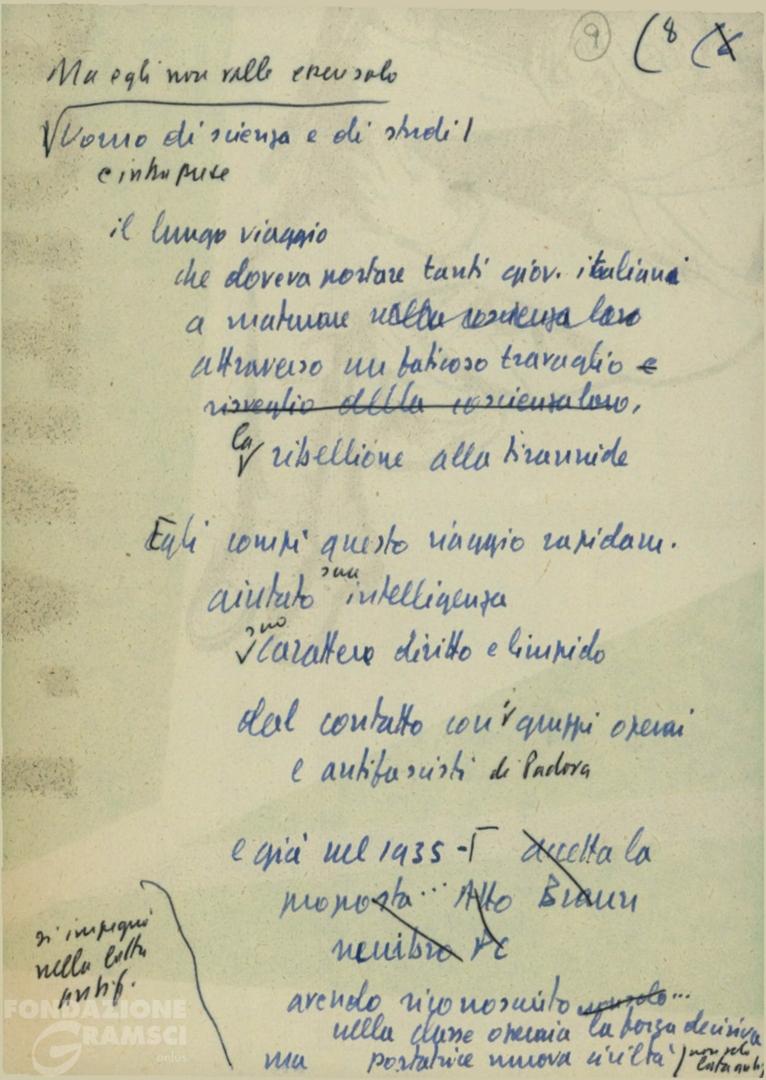 9 (8
Ma egli non volle essere solo
Uomo di scienza e di studi
e intraprese
il lungo viaggio
che doveva portare tanti giov. italiani
a maturare nella coscienza loro
attraverso un faticoso travaglio e
risveglio della coscienza loro,
la ribellione alla tirannide
Egli compì questo viaggio rapidam.
aiutato sua intelligenza
suo carattere diritto e limpido
dal contatto con i gruppi operai
e antifascisti di Padova
e già nel 1935 - accetta la
proposta... Atto Braun
membro PC
si impegnò
nella lotta
antif.
avendo riconosciuto
nella classe operaia la forza decisiva
ma portatrice nuova civiltà non solo
lotta
FONDAZIONE
GRAMSCI
onlus